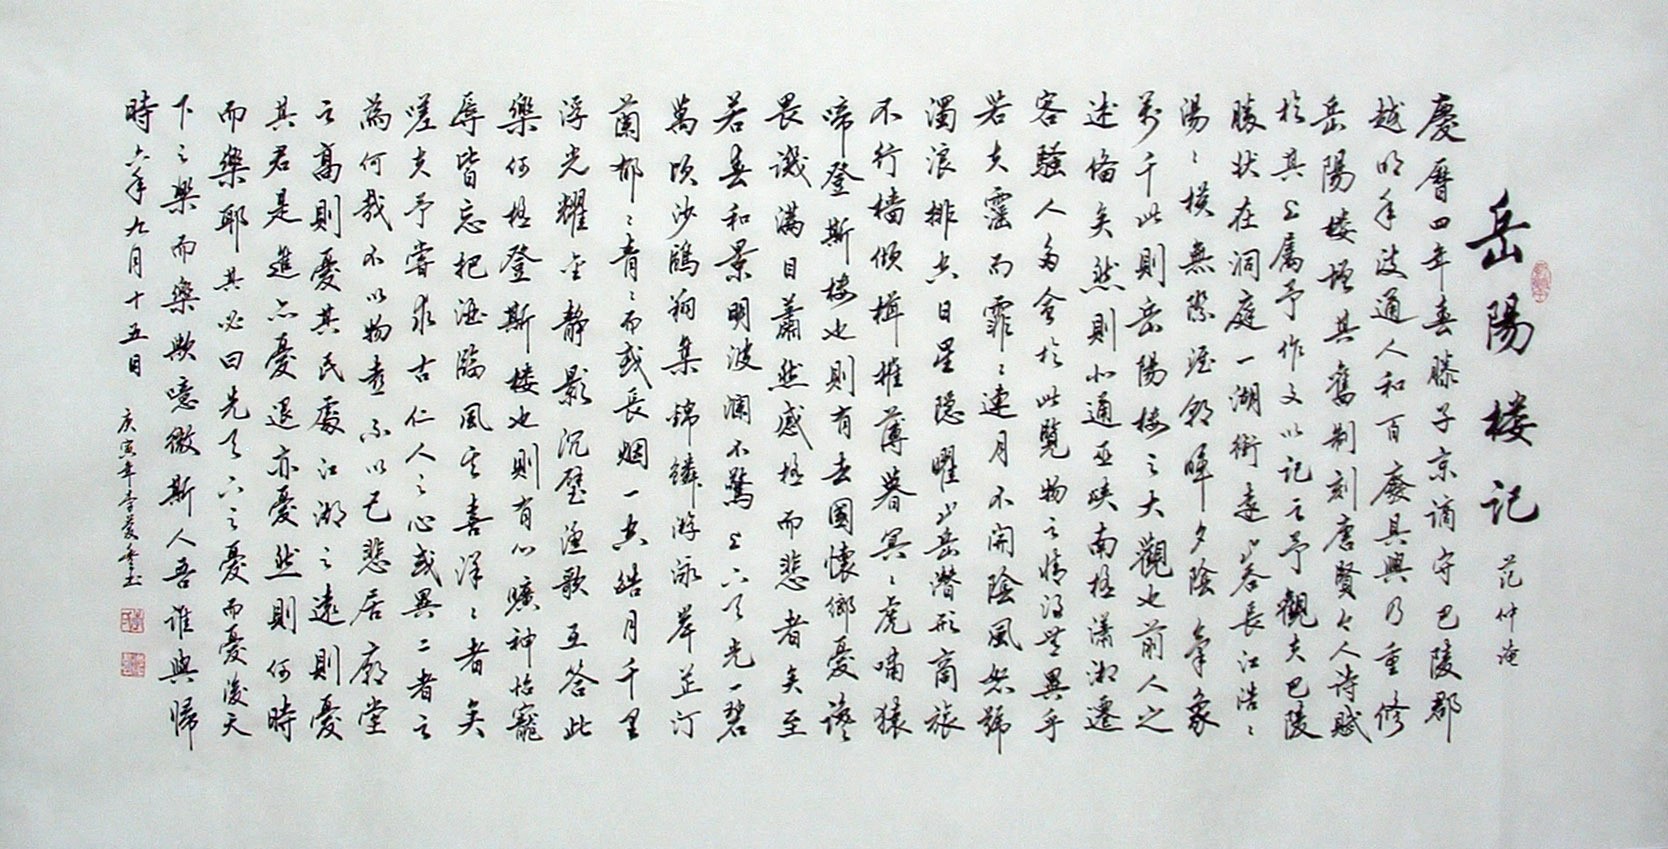 岳陽楼记
范仲淹
慶曆四年春滕子京谪守巴陵郡
越明年政通人和百廢具興乃重修
岳陽楼增其舊制刻唐賢今人诗賦
於其上屬予作文以记之予觀夫巴陵
勝状在洞庭一湖銜遠山吞長江浩〻
湯〻横無際涯朝暉夕陰氣象
萬千此則岳陽楼之大觀也前人之
述俻矣然則北通巫峡南極潇湘遷
客騷人多會於此覧物之情得無異乎
若夫霪雨霏〻連月不開陰風怒號
濁浪排空日星隐曜山岳潜形商旅
不行檣傾楫摧薄暮冥〻虎嘯猿
啼登斯楼也則有去國懷鄉憂讒
畏譏滿目蕭然感極而悲者矣至
若春和景明波瀾不驚上下天光一碧
萬頃沙鷗翔集錦鱗游泳岸芷汀
蘭郁〻青〻而或長烟一空皓月千里
浮光耀金静影沉璧渔歌互答此
樂何極登斯楼也則有心曠神怡寵
辱皆忘把酒臨風其喜洋〻者矣
嗟夫予嘗求古仁人之心或異二者之
為何哉不以物喜不以己悲居廟堂
之高則憂其民處江湖之遠則憂
其君是進亦憂退亦憂然則何時
而樂耶其必曰先天下之憂而憂後天
下之樂而樂歟噫微斯人吾谁與歸
時六年九月十五日
庚寅年李